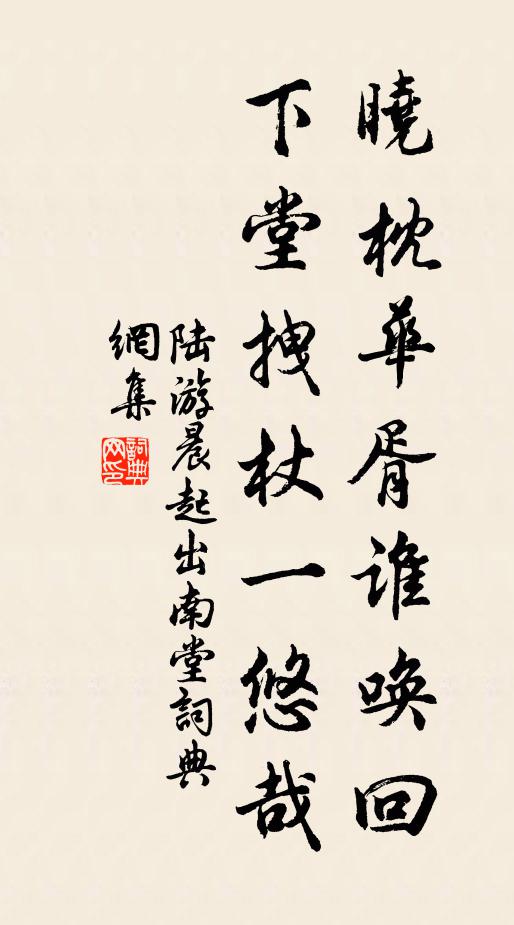 曉枕華胥誰喚回
下堂拽杖一悠哉
陆游晨起出南堂詞典
網集
詞典
网印